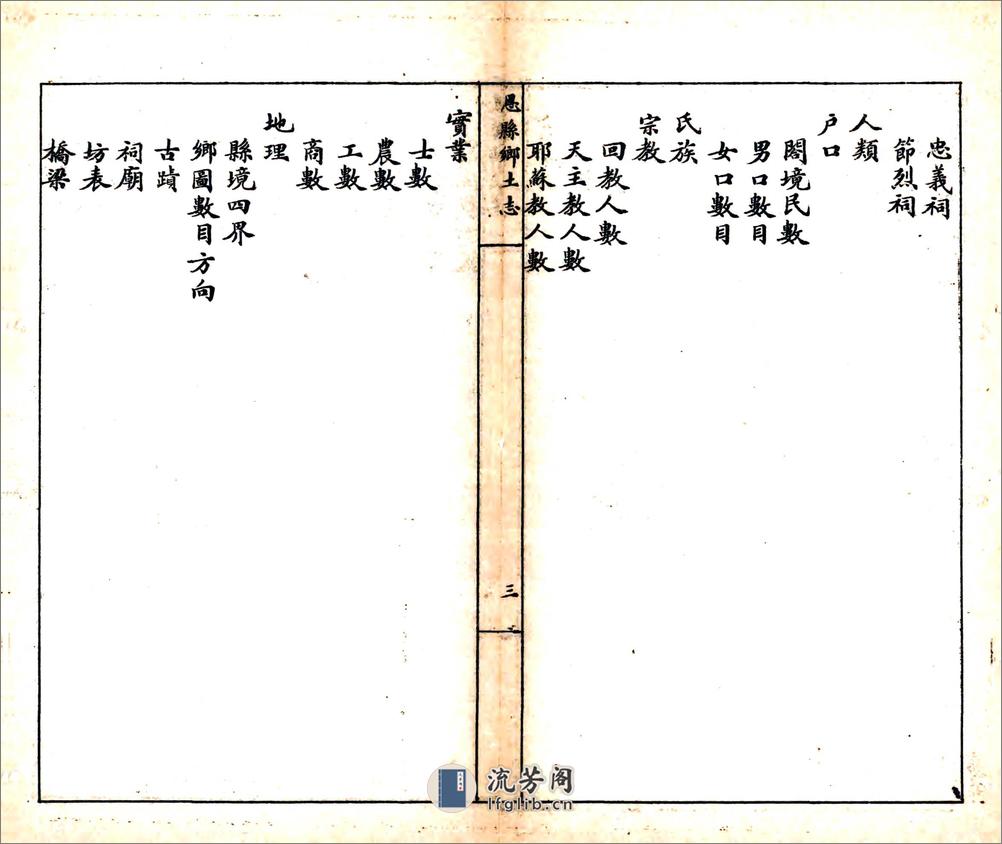 忠義祠
節烈祠
人類
戶口
閤境民數
男口數目
女口數目
氏族
宗教
回教人數
天主教人數
耶蘇教人數
恩縣鄉土志
三
實業
士數
農數
工數
商數
地理
縣境四界
鄉圖數目方向
古蹟
祠廟
坊表
橋梁
流芳阁
lfglib.cn